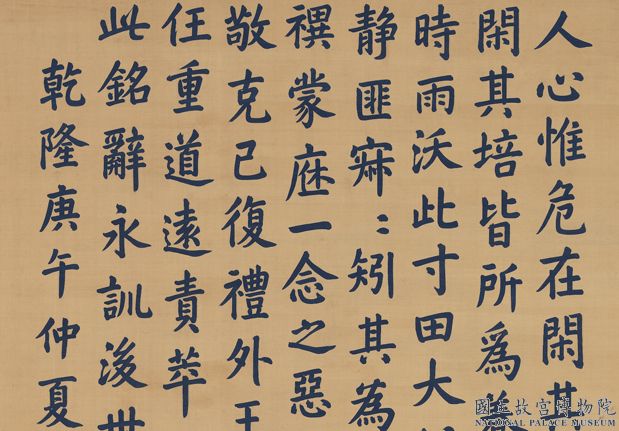 人心惟危在閑其
閑其培皆所爲
時雨沃此寸田大
静匪寐〻矧其為
禩蒙庶一念之惡
敬克己復禮外王
任重道遠責萃
此銘辭永訓後世
乾隆庚午仲夏
國立故宮博物院
NATIONAL PALACE MUSEUM